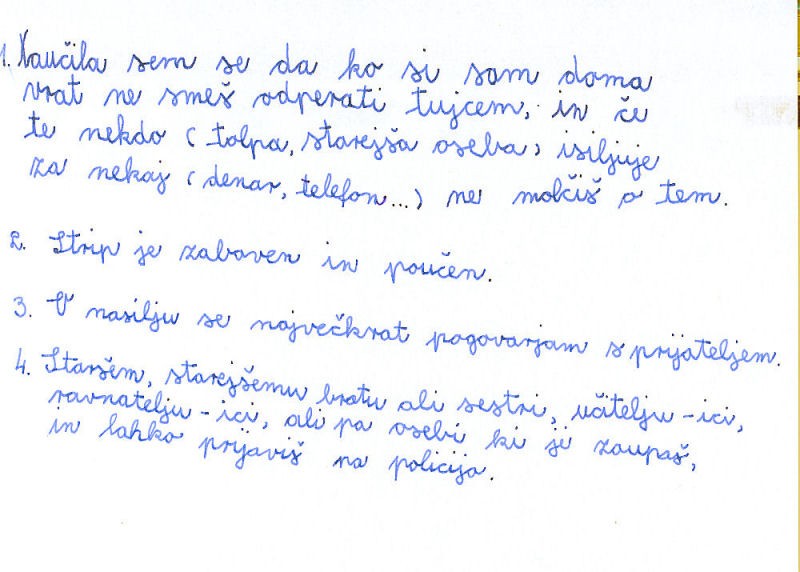 1. Naučila sem se da ko si sam doma
vrat ne smeš odperati tujcem, in če
te nekdo (tolpa, starejša oseba) isiljuje
za nekaj (denar, telefon...) ne molčiš o tem.
2. Strip je zabaven in poučen.
3. O nasilju se največkrat pogovarjam s prijateljem.
4. Staršem, starejšemu bratu ali sestri, učitelju-ici,
ravnatelju-ici, ali pa osebi ki ji zaupaš,
in lahko prijaviš na policija.